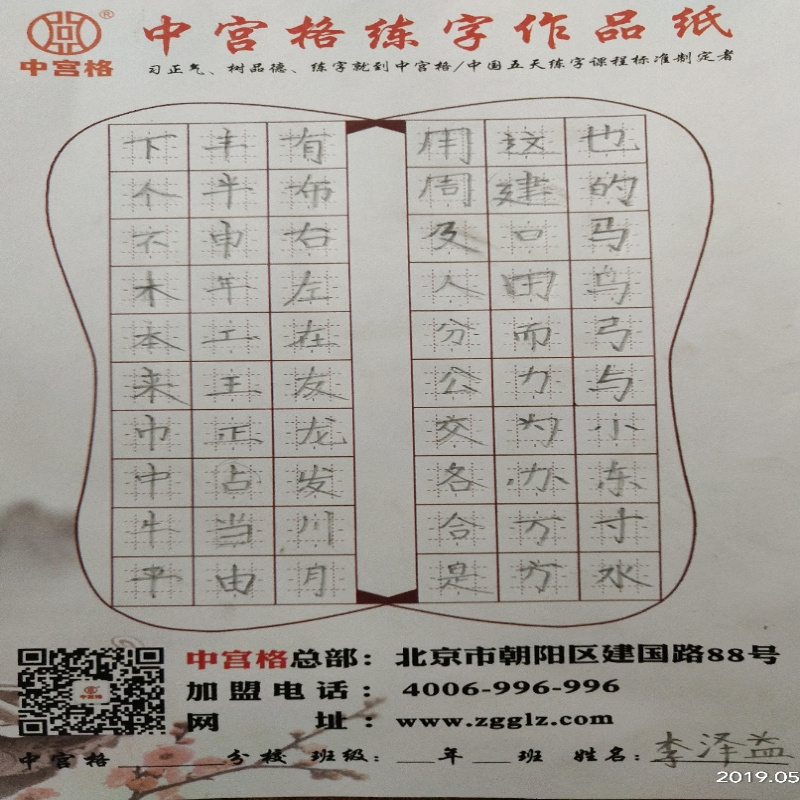 中宫格
®
中宫格练字作品纸
习正气、树品德、练字就到中宫格/中国五天练字课程标准制定者
下 丰 有 用 这 也
个 半 布 周 建 的
不 申 右 及 口 马
木 年 左 人 田 鸟
本 工 在 分 而 弓
来 王 友 公 力 与
巾 正 龙 交 为 小
中 占 发 各 办 东
牛 当 川 合 万 寸
平 由 月 是 方 水
中宫格总部：北京市朝阳区建国路88号
加盟电话：4006-996-996
网址：www.zgglz.com
中宫格________分校 班级：__年__班 姓名：李泽益
2019.05